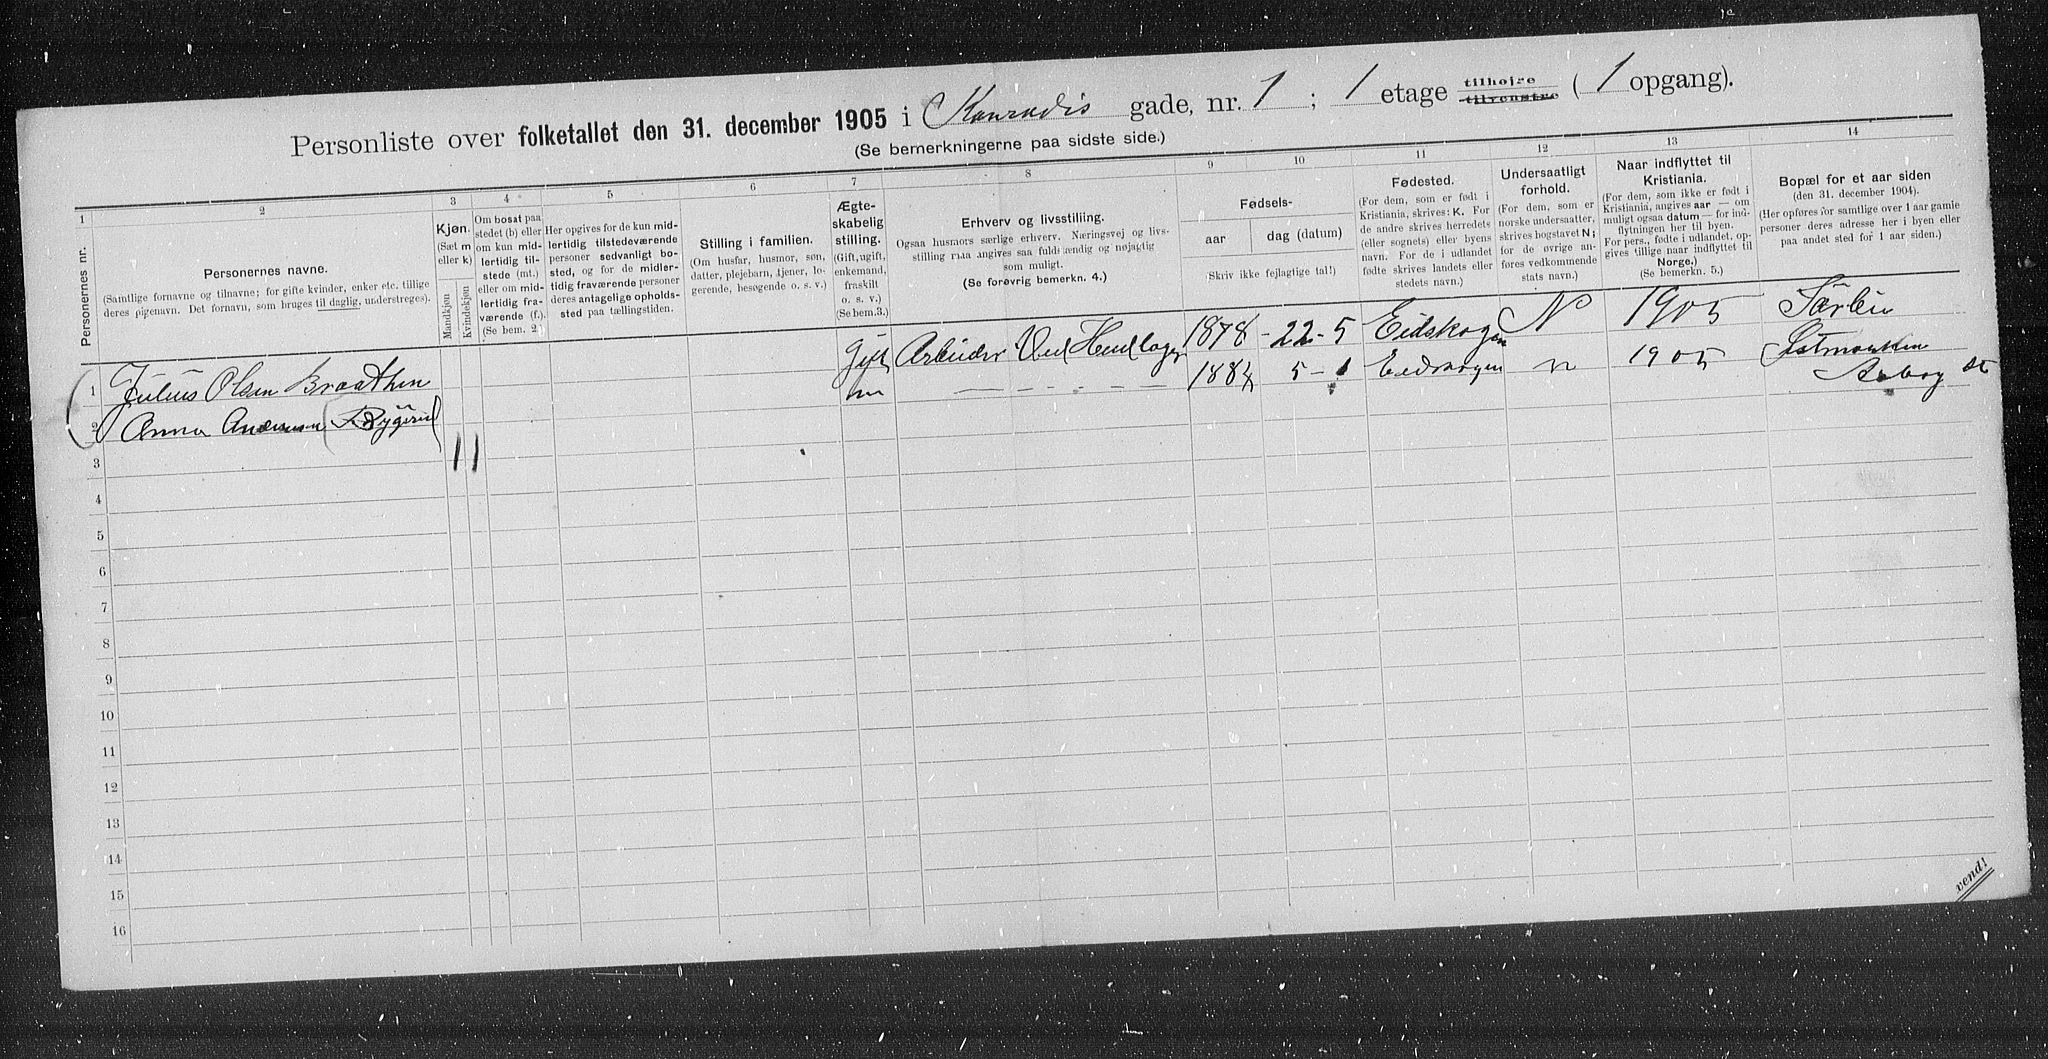 Personliste over folketallet den 31. december 1905 i Konradis gade, nr. 1 ; 1 etage tilhøjre tilvenstre ( 1 opgang).
(Se bemerkningerne paa sidste side.)
1 2 3 4 5 6 7 8 9 10 11 12 13 14
Personernes nr.
Personernes navne.
(Samtlige fornavne og tilnavne; for gifte kvinder, enker etc. tillige
deres pigenavn. Det fornavn, som bruges til daglig, understreges).
Kjøn.
(Sæt m
eller k)
Mandkjøn
Kvindekjøn
Om bosat paa
stedet (b) eller
om kun mid-
lertidig til-
stede (mt.)
eller om mid-
lertidig fra-
værende (f.).
(Se bem. 2.)
Her opgives for de kun mid-
lertidig tilstedeværende
personer sedvanlig bo-
sted, og for de midler-
tidig fraværende personer
deres antagelige opholds-
sted paa tællingstiden.
Stilling i familien.
(Om husfar, husmor, søn,
datter, plejebarn, tjener, lo-
gerende, besøgende o. s. v.)
Ægte-
skabelig
stilling.
(Gift, ugift,
enkemand,
fraskilt
o. s. v.)
(Se bem.3.)
Erhverv og livsstilling.
Ogsaa husmors særlige erhverv. Næringsvej og livs-
stilling maa angives saa fuldstændig og nøjagtig
som muligt.
(Se forøvrig bemerkn. 4.)
Fødsels-
aar
dag (datum)
(Skriv ikke fejlagtige tal!)
Fødested.
(For dem, som er født i
Kristiania, skrives: K. For
de andre skrives herredets
(eller sognets) eller byens
navn. For de i udlandet
fødte skrives landets eller
stedets navn.)
Undersaatligt
forhold.
(For dem, som er
norske undersaatter,
skrives bogstavet N;
for de øvrige an-
føres vedkommende
stats navn.)
Naar indflyttet til
Kristiania.
(For dem, som ikke er født i
Kristiania, angives aar — om
muligt ogsaa datum — for ind-
flytningen her til byen.
For pers., fødte i udlandet, op-
gives tillige naar indflyttet til
Norge.)
(Se bemerkn. 5.)
Bopæl for et aar siden
(den 31. december 1904).
(Her opføres for samtlige over 1 aar gamle
personer deres adresse her i byen eller
paa andet sted for 1 aar siden.)
1 Julius Olsen Braathen gift Arbeider Ved 1878 - 22 - 5 Eidskogen N 1905
2 Anna Andersen 5 - 1 Eidskogen n 1905
1 1
3
4
5
6
7
8
9
10
11
12
13
14
15
16
vend!